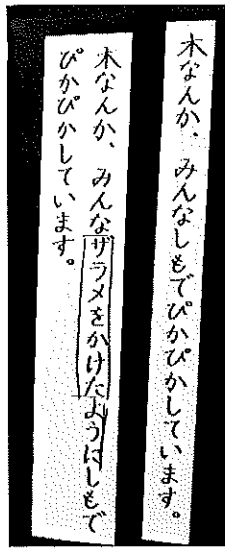 木なんか、みんなしもでぴかぴかしています。
木なんか、みんなザラメをかけたようにしもで
ぴかぴかしています。